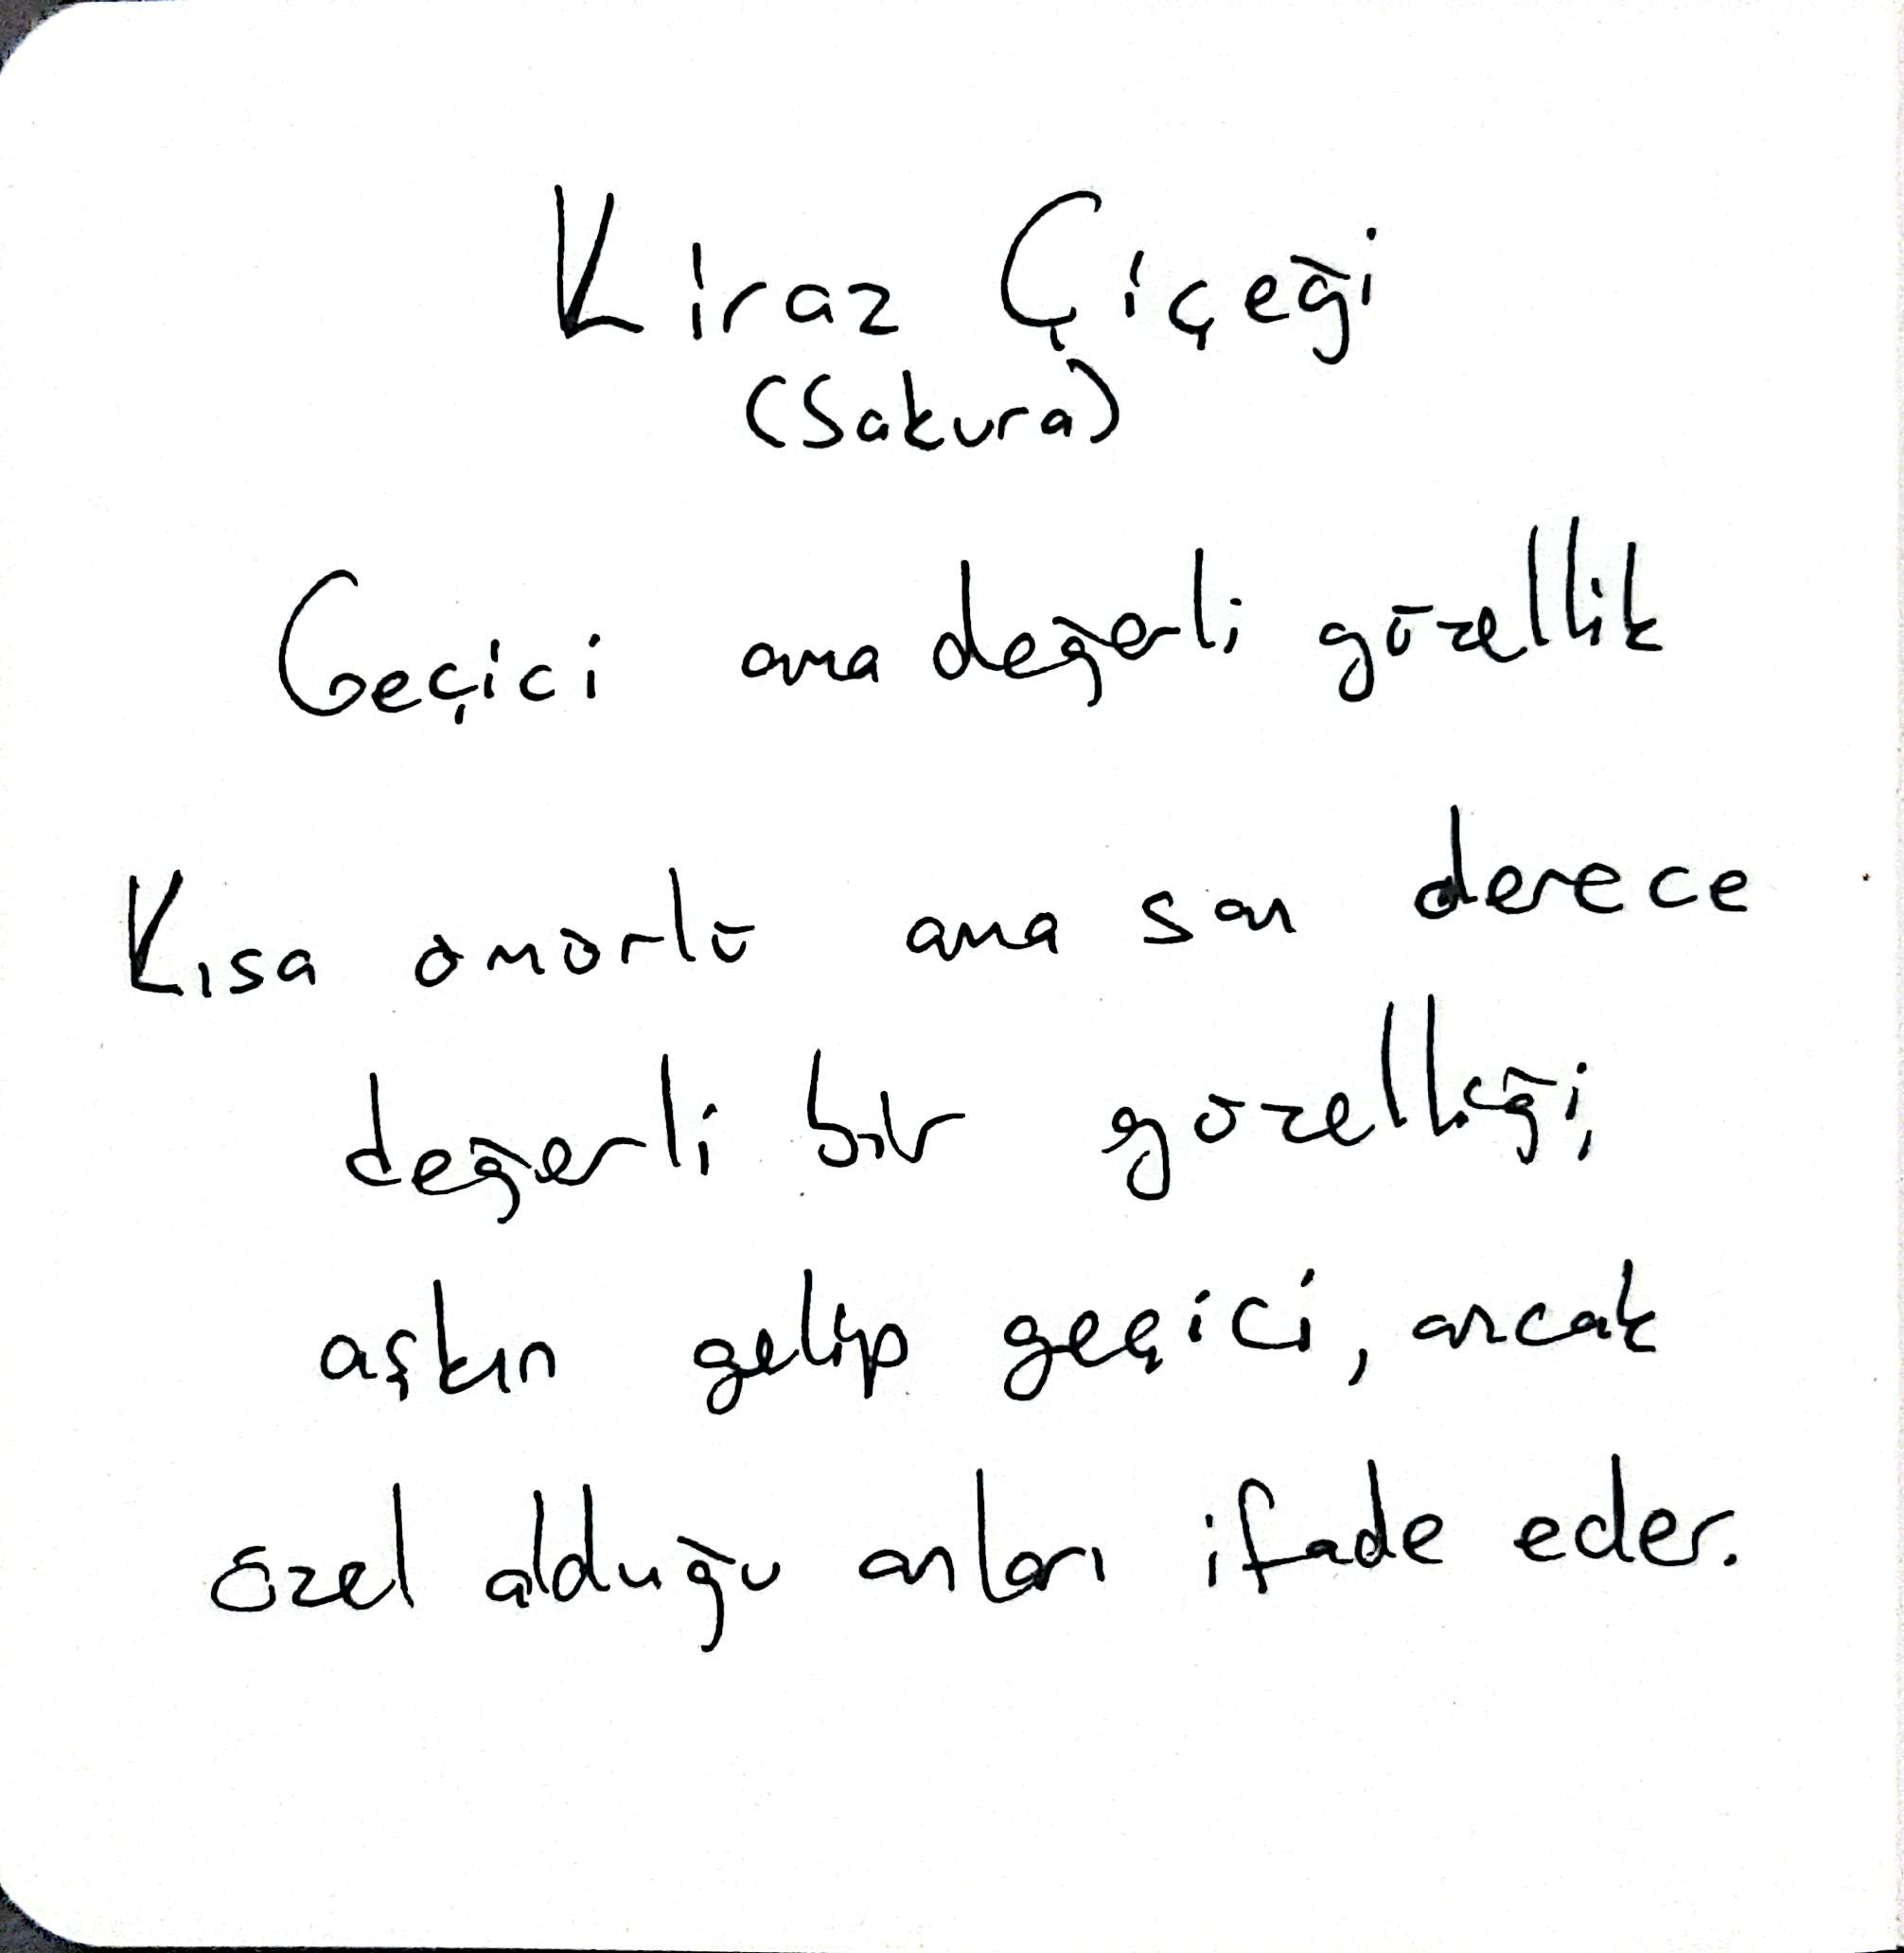 Kiraz Çiçeği
(Sakura)
Geçici ama değerli güzellik
Kısa ömürlü ama son derece
değerli bir güzelliği,
aşkın gelip geçici, ancak
özel olduğu anları ifade eder.